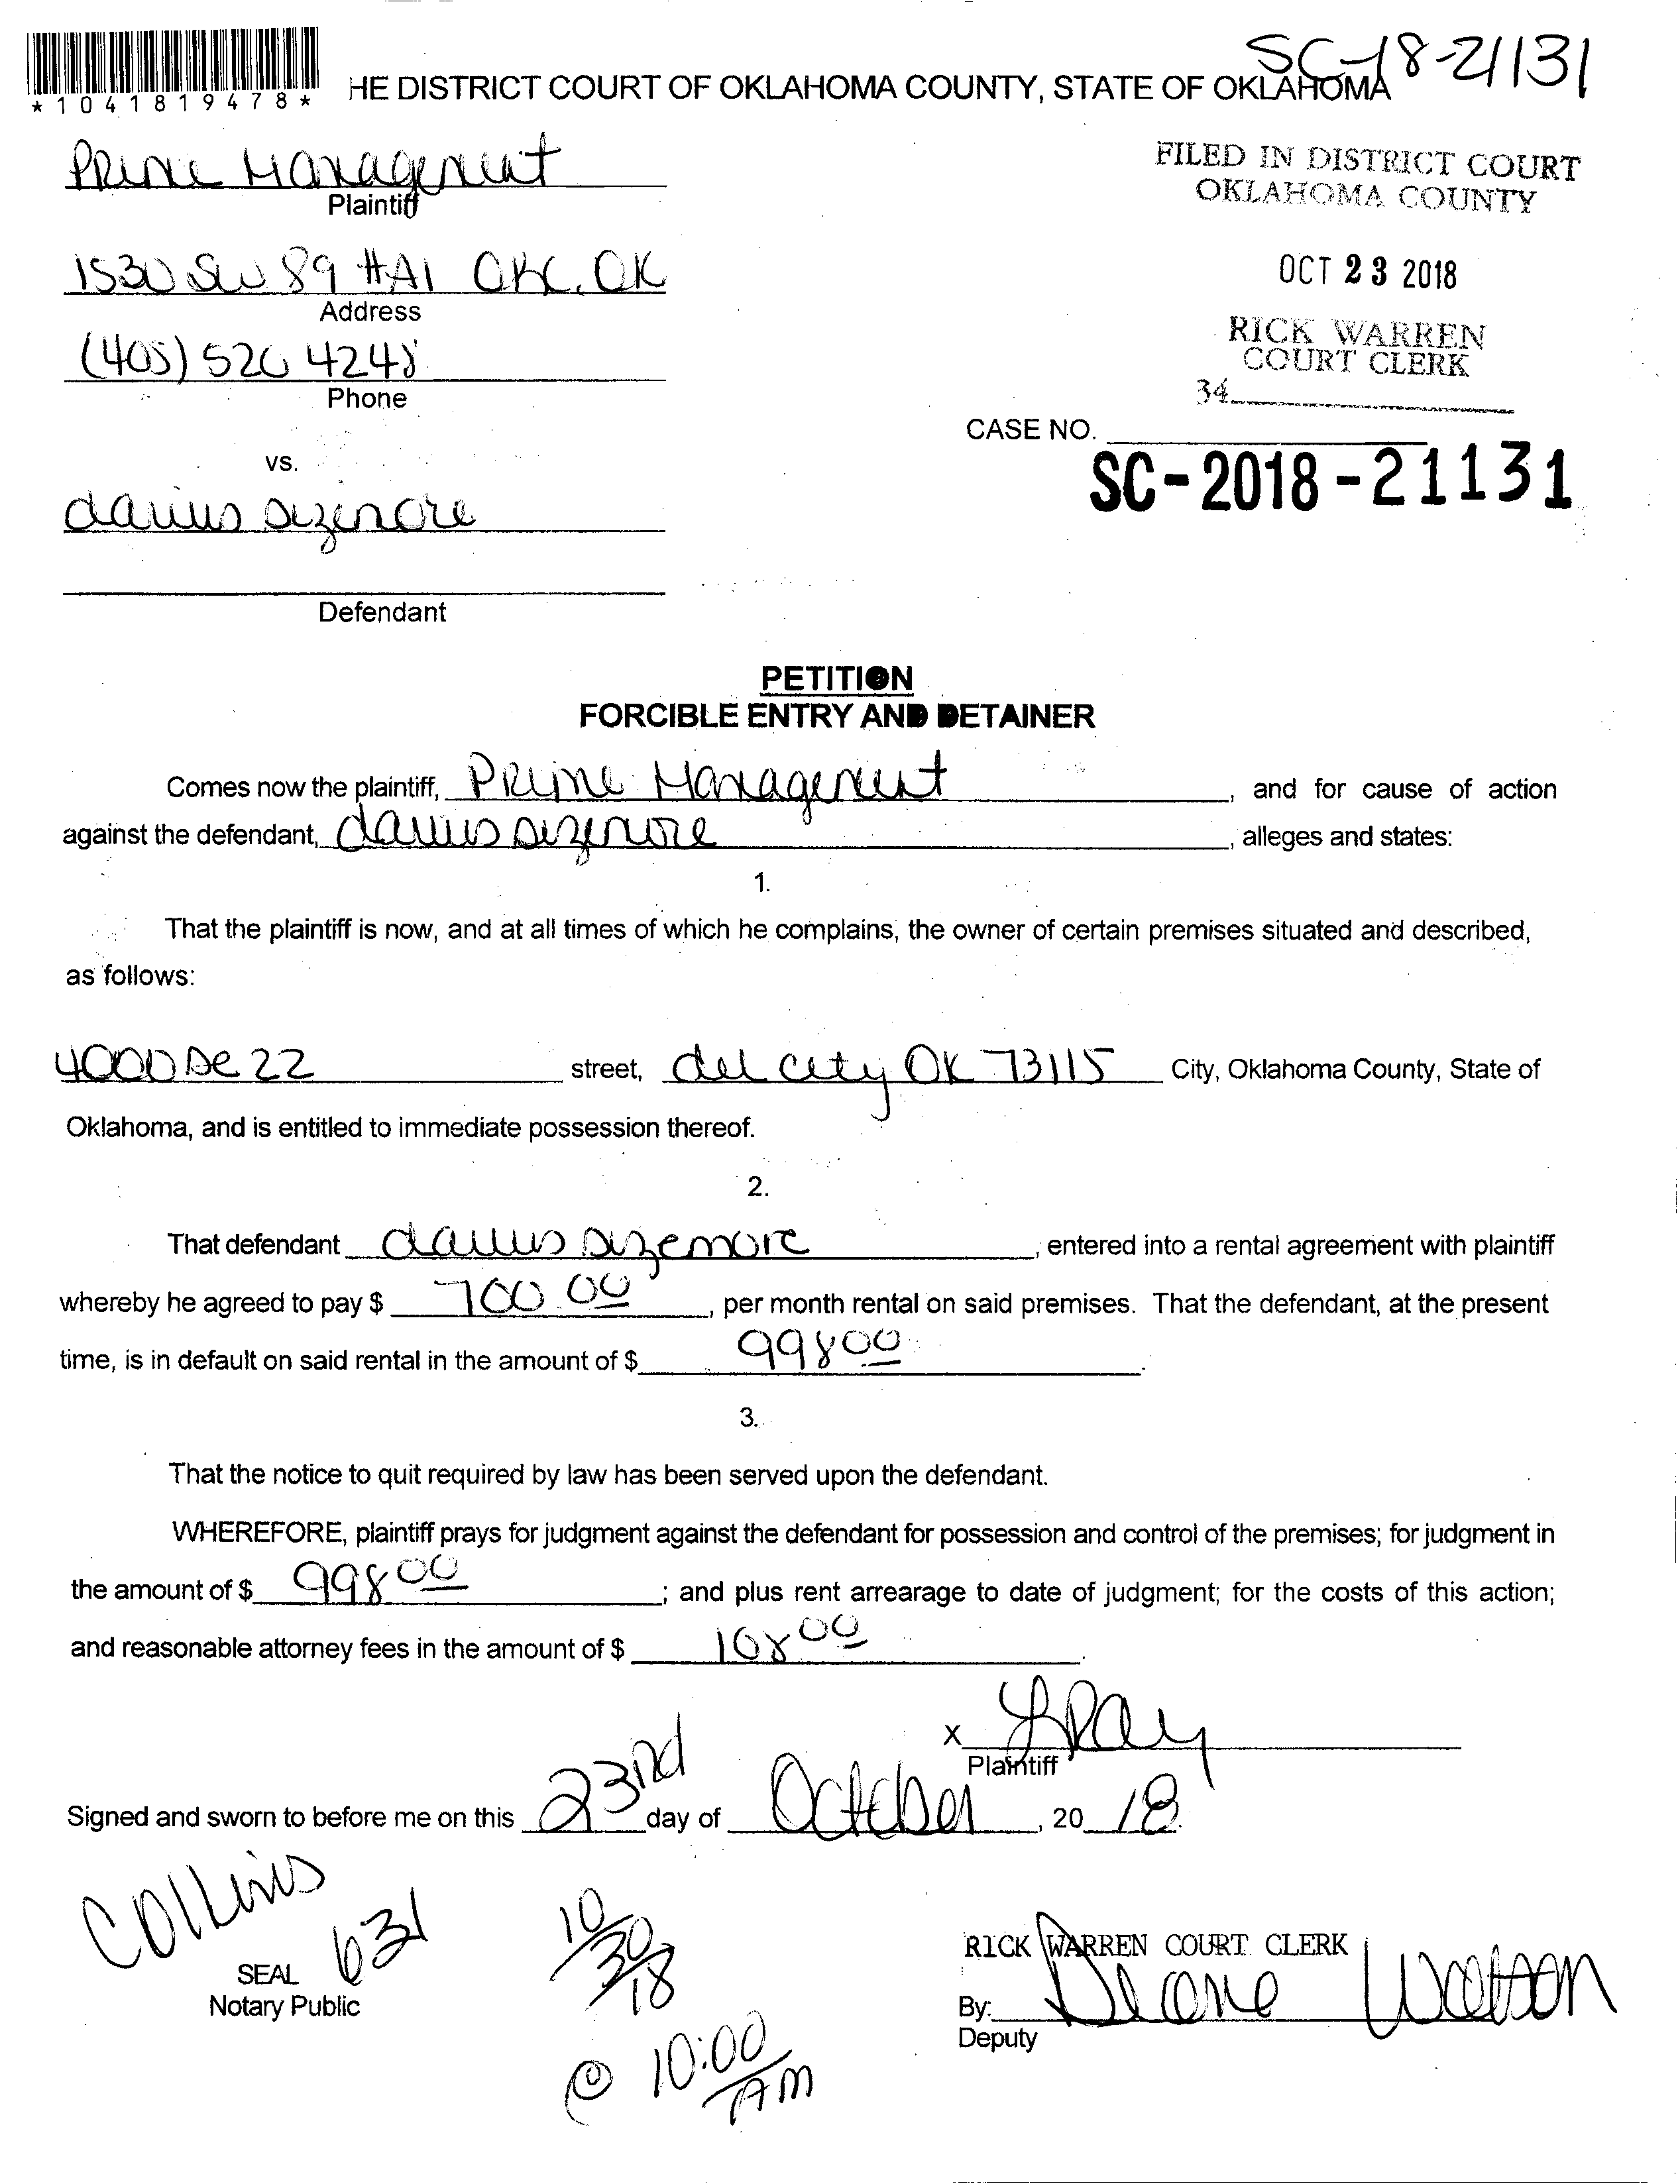 SC-18-21131
*1041819478*
HE DISTRICT COURT OF OKLAHOMA COUNTY, STATE OF OKLAHOMA
Prime Management
Plaintiff
1530 SW 89 #A1 OKC, OK
Address
(405) 526 4248
Phone
vs.
darius sizemore
Defendant
FILED IN DISTRICT COURT
OKLAHOMA COUNTY
OCT 23 2018
RICK WARREN
COURT CLERK
34
CASE NO.
SC-2018-21131
PETITION
FORCIBLE ENTRY AND DETAINER
Comes now the plaintiff, Prime Management, and for cause of action
against the defendant, darius sizemore, alleges and states:
1.
That the plaintiff is now, and at all times of which he complains, the owner of certain premises situated and described,
as follows:
4000 Se 22 street, del city OK 73115 City, Oklahoma County, State of
Oklahoma, and is entitled to immediate possession thereof.
2.
That defendant darius sizemore, entered into a rental agreement with plaintiff
whereby he agreed to pay $ 700.00, per month rental on said premises. That the defendant, at the present
time, is in default on said rental in the amount of $ 998 00.
3.
That the notice to quit required by law has been served upon the defendant.
WHEREFORE, plaintiff prays for judgment against the defendant for possession and control of the premises; for judgment in
the amount of $ 998 00; and plus rent arrearage to date of judgment; for the costs of this action;
and reasonable attorney fees in the amount of $ 108 00.
X
Plaintiff
Signed and sworn to before me on this 23rd day of October, 20 18.
Collins
631
SEAL
Notary Public
10/30/18
@ 10:00 AM
RICK WARREN COURT CLERK
By: Diane Watson
Deputy